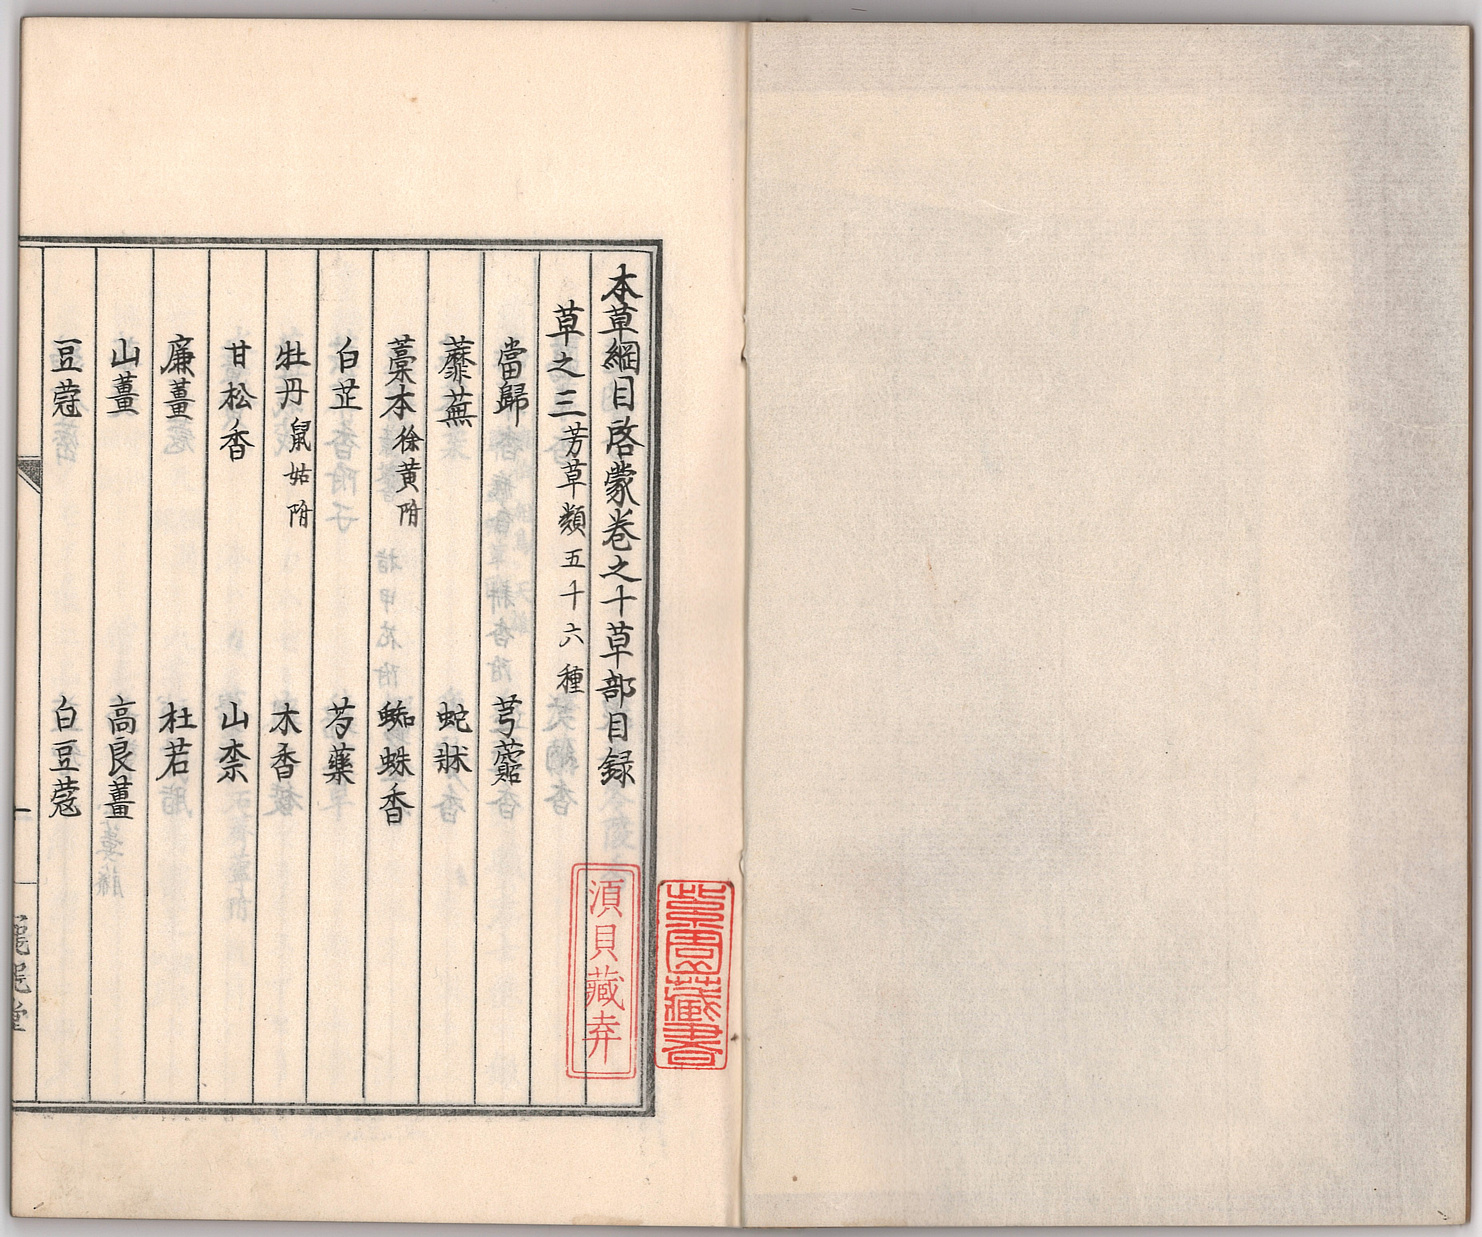 本草綱目啓蒙卷之十草部目録
草之三芳草類五十六種
當歸 芎藭
蘼蕪 蛇牀
藁本徐黄附 蜘蛛香
白芷 芍藥
牡丹鼠姑附 木香
甘松香 山柰
廉薑 杜若
山薑 高良薑
豆蔻 白豆蔻
須貝藏弆
藏書